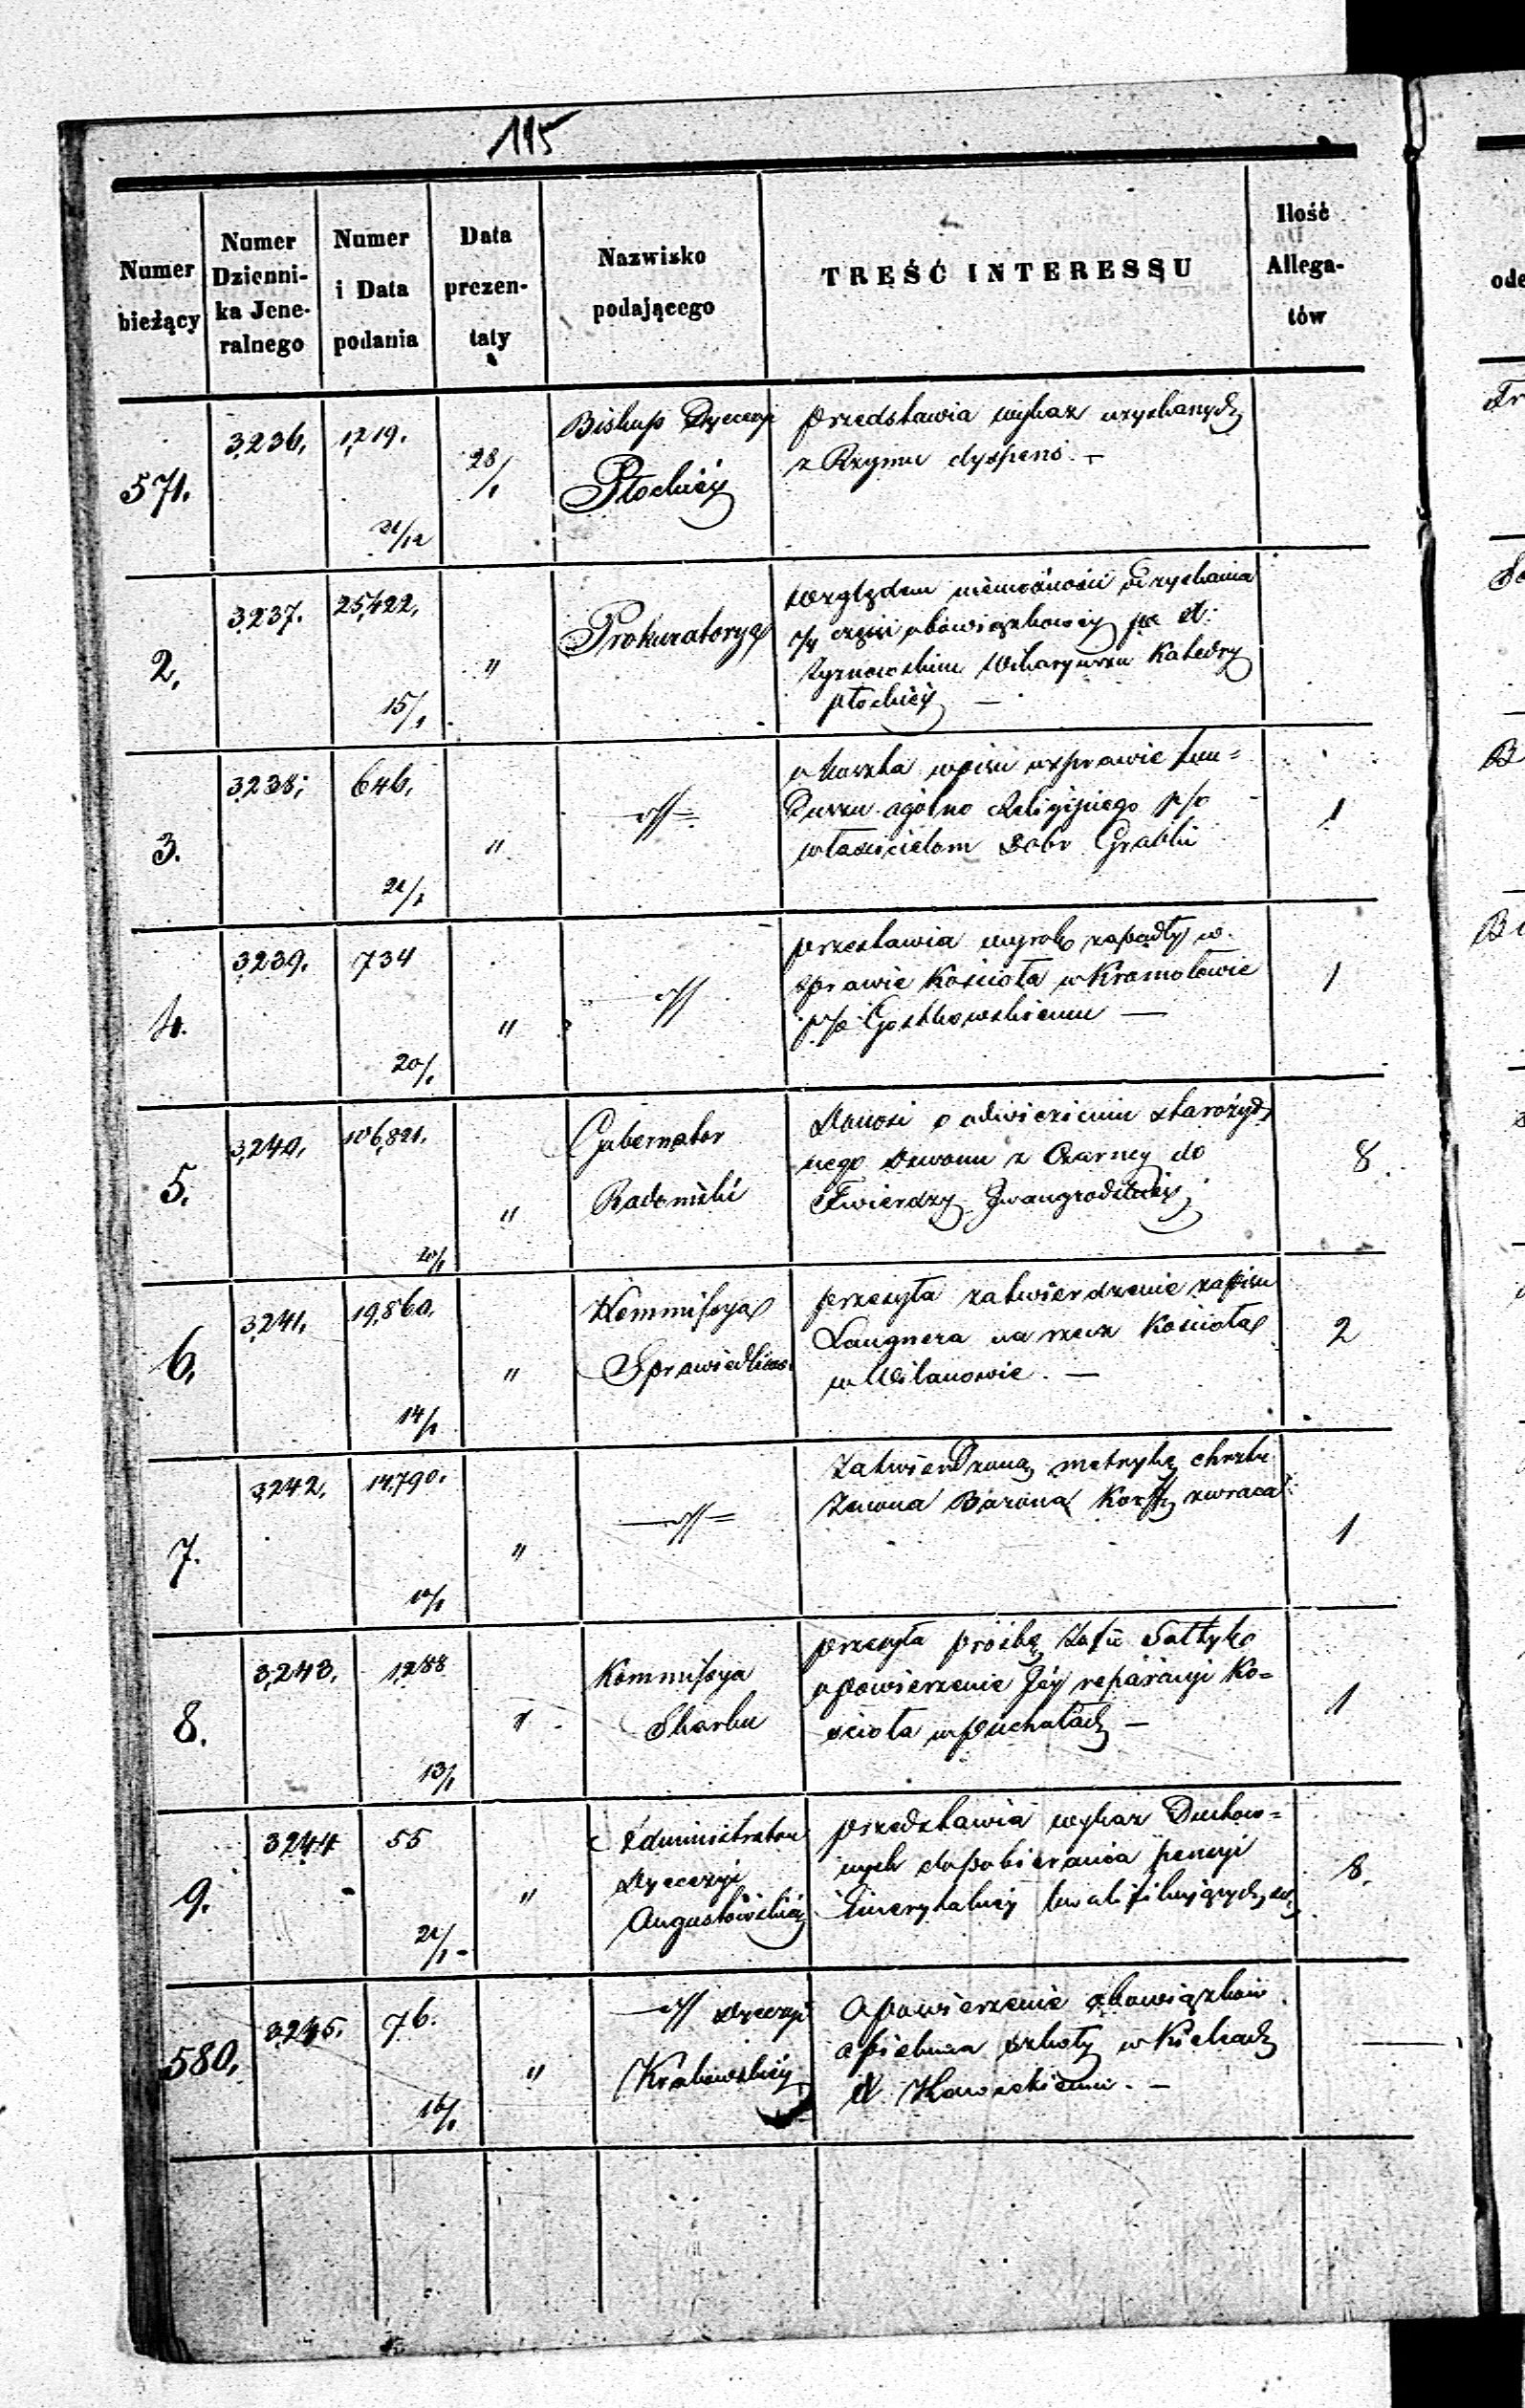 115
Numer bieżący
Numer Dzienni-ka Jene-ralnego
Numer i Data podania
Data prezen-taty
Nazwisko podającego
TREŚĆ INTERESSU
Ilość Allega-tów
571.
3,236.
1,219.
31/12
28/1
Biskup Dyecezyi
Płockiéy
przedstawia wykaz uzyskanych
z Rzymu dyspens. —
2.
3,237.
25,422.
15/1
"
Prokuratorya
względem niemożności
części obowiązkowey
Wikaryuszu Katedry
płockiéy —
3.
3,238.
646.
21/1
"
o koszta wpisu w sprawie fun=
duszu ogólno Religijnego p/o
właścicielom Dobr Grabki
1
4.
3,239.
734
20/1
"
przestawia wyrok zapadły w
sprawie Kościoła w Kromołowie
p/o Gostkowskiemu —
1
5.
3,240.
106,821.
20/1
"
Gubernator
Radomski
Donosi o odwiezieniu starożyt
nego dzwonu z Czarney do
Twierdzy Iwangrodzkiéy
8
6.
3,241.
19,860.
14/1
"
Kommissya
Sprawiedliwo.
przesyła zatwierdzenie zapisu
Langnera na rzecz Kościoła
w Wilanowie. —
2
7.
3,242.
14,790.
"
Zatwierdzoną metrykę chrztu
Barona Korff zwraca
1
8.
3,243.
1,288
13/1
Kommissya
Skarbu
przesyła prośbę Zofii Sołtyk
o powierzenie Jéy reparacyi Ko=
ścioła w Puchałach —
1
9.
3,244
55
21/1
"
Administrator
Dyecezyi
Augustowskiéy
przedstawia wykaz Duchow=
nych do pobierania pensyi
Emerytalnéy kwalifikujących się
8.
580.
3,245.
76.
16/1
"
Dyecezyi
Krakowskiéy
O powierzenie obowiązków
opiekuna szkoły w Kielcach
X.
ode